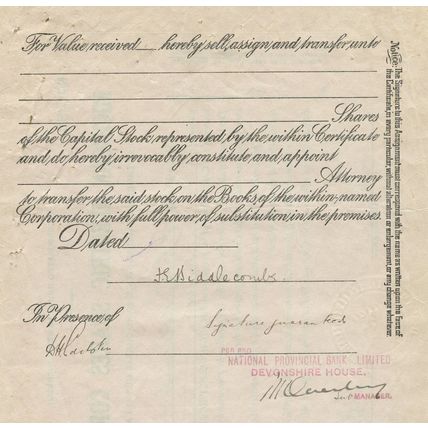 For Value received, hereby sell, assign, and transfer, unto
Shares
of the Capital Stock, represented, by the, within Certificate
and, do, hereby, irrevocably, constitute and, appoint
Attorney
to transfer, the said, stock, on the Books, of the, within, named
Corporation, with full, power, of substitution, in the premises.
Dated
Biddlecombe.
In Presence, of
Signature guaranteed
PER PRO
NATIONAL PROVINCIAL BANK LIMITED
DEVONSHIRE HOUSE,
MANAGER.
Notice: The Signature to this Assignment must correspond with the name as written upon the face of
the Certificate, in every particular, without alteration or enlargement, or any change whatever.